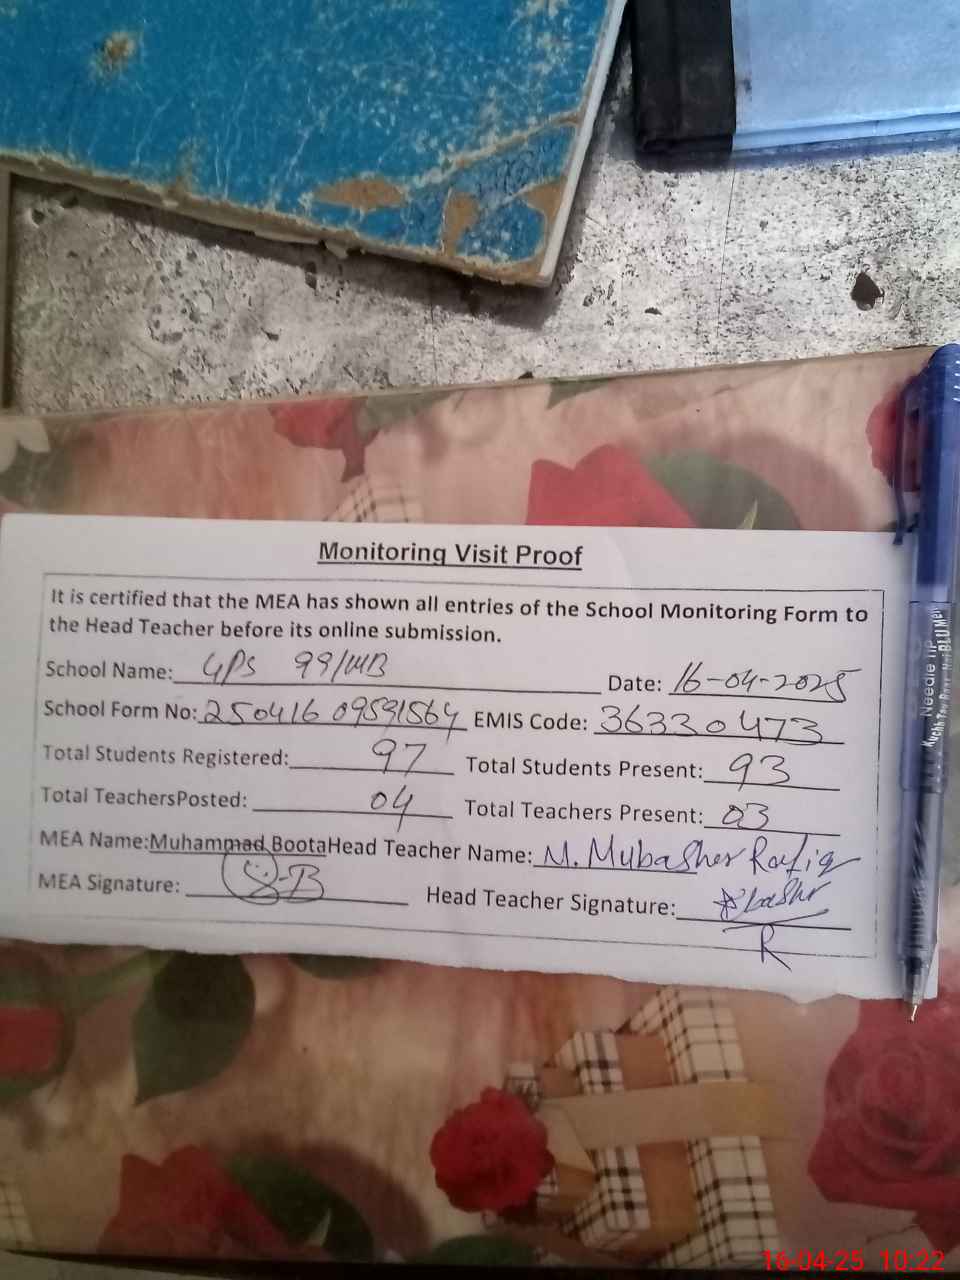 Monitoring Visit Proof
It is certified that the MEA has shown all entries of the School Monitoring Form to
the Head Teacher before its online submission.
School Name: GPS 99/MB Date: 16-04-2025
School Form No: 250416 09591564 EMIS Code: 36330473
Total Students Registered: 97 Total Students Present: 93
Total TeachersPosted: 04 Total Teachers Present: 03
MEA Name:Muhammad BootaHead Teacher Name: M. Mubasher Rafiq
MEA Signature: Head Teacher Signature:
R
Needle TIP
16-04-25 10:22